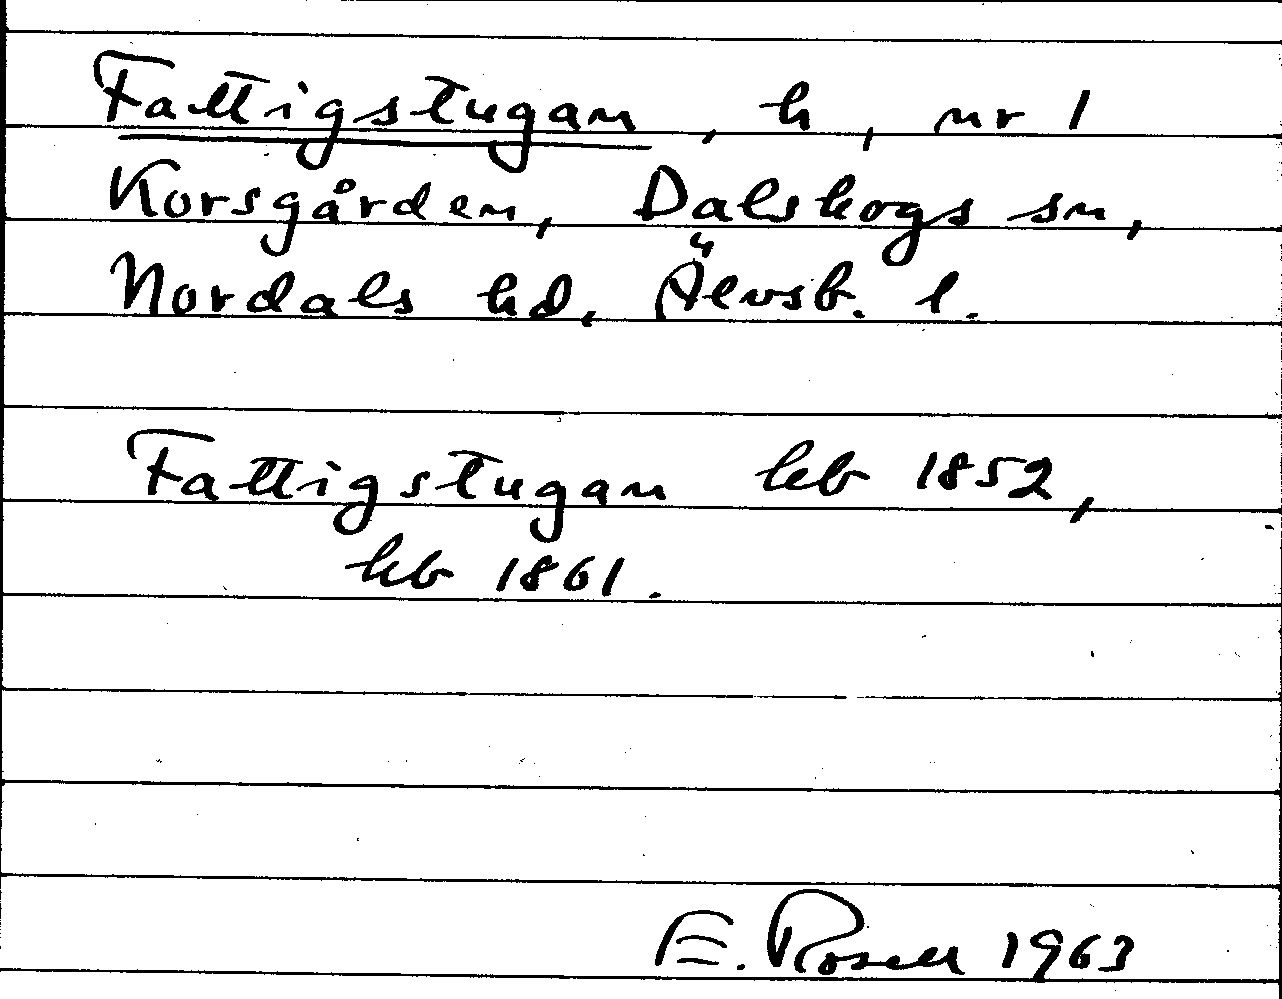 Fattigstugan, h, nr 1
Korsgården, Dalskogs sn,
Nordals hd, Älvsb. l.
Fattigstugan hb 1852,
hb 1861.
E. Rosell 1963